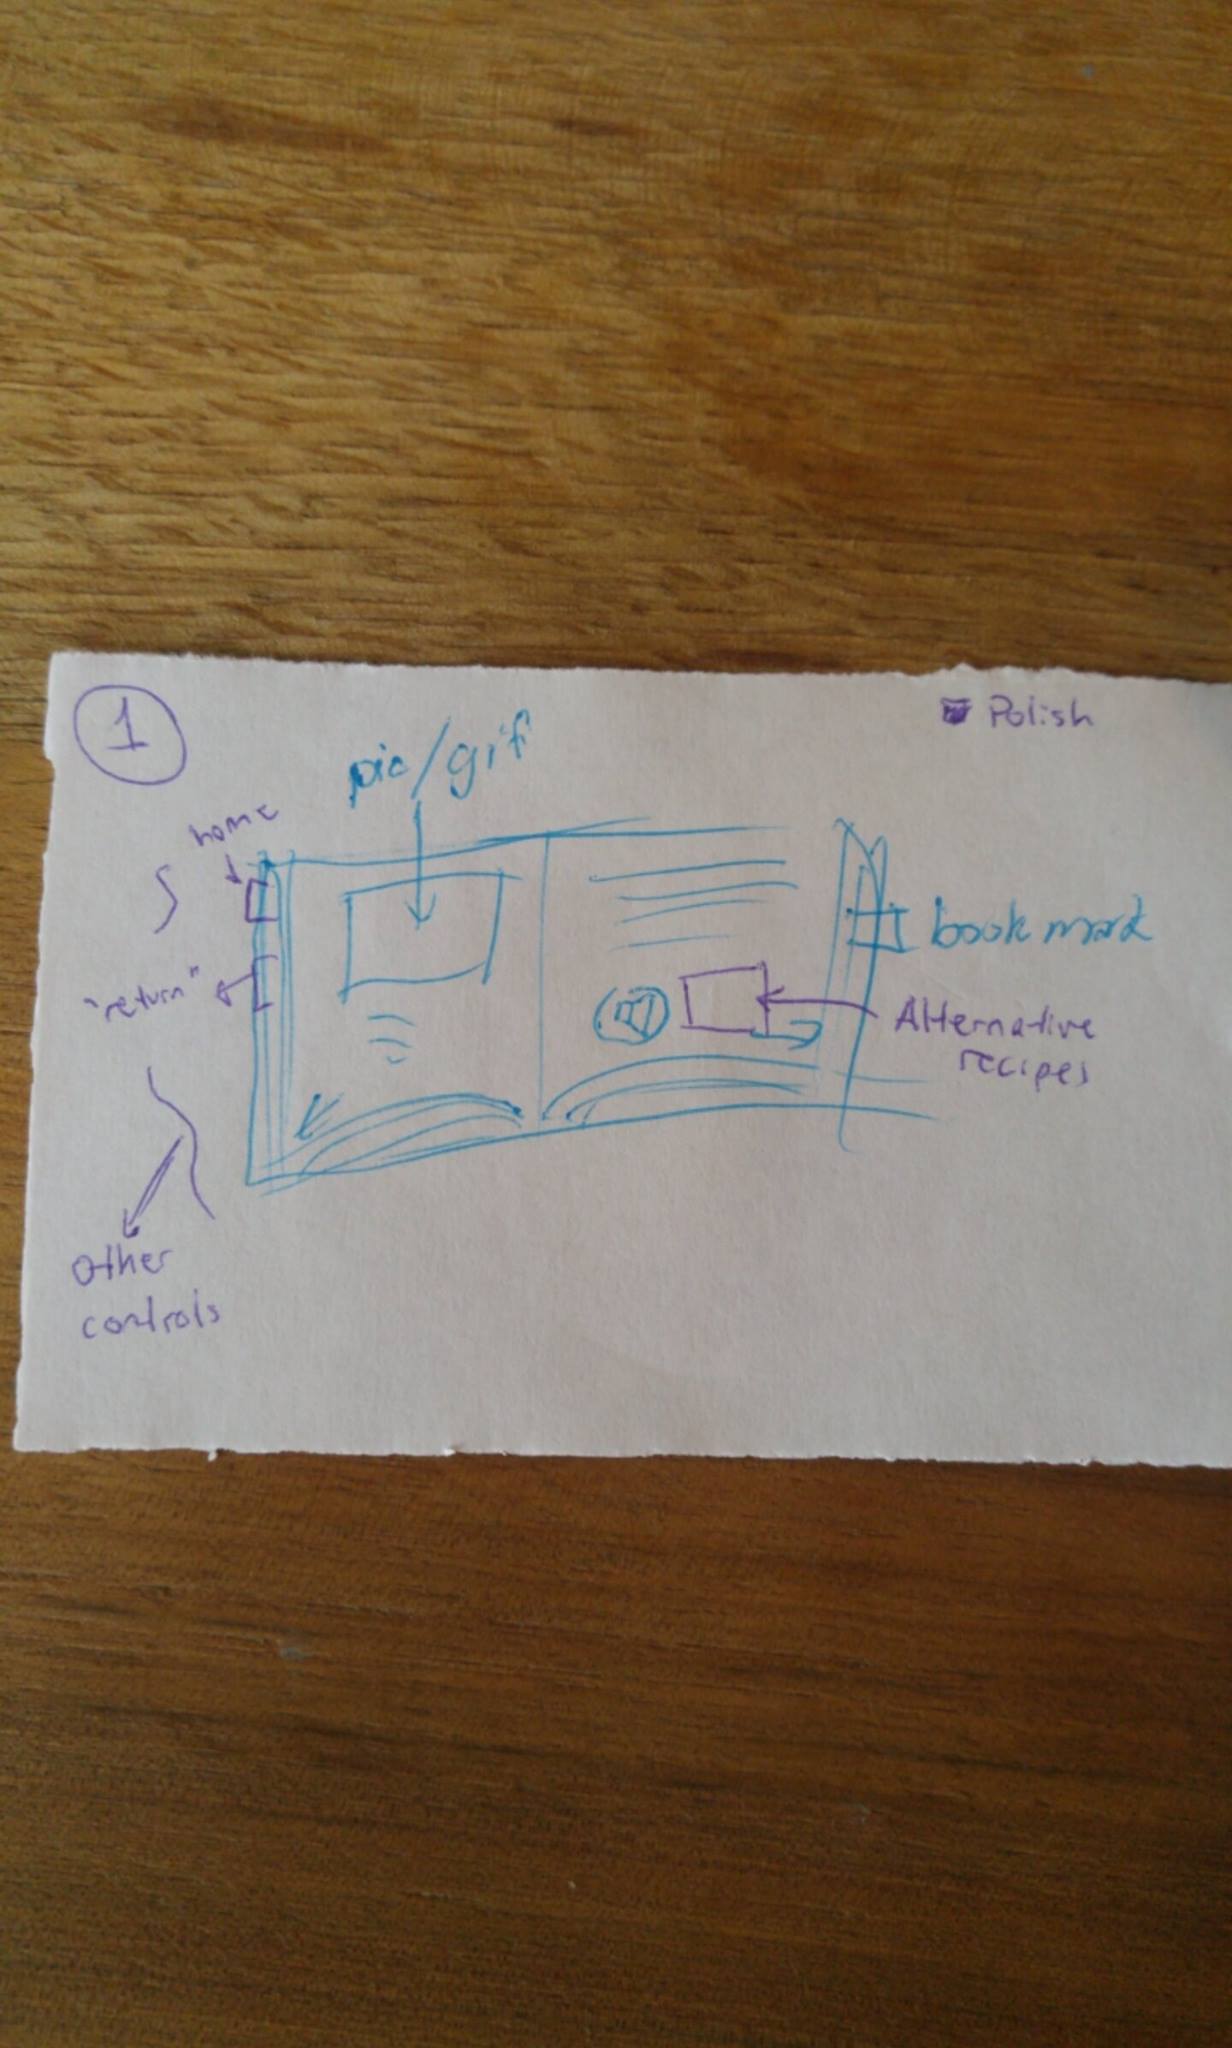 1
Polish
pic/gif
home
"return"
book mark
Alternative
recipes
Other
controls